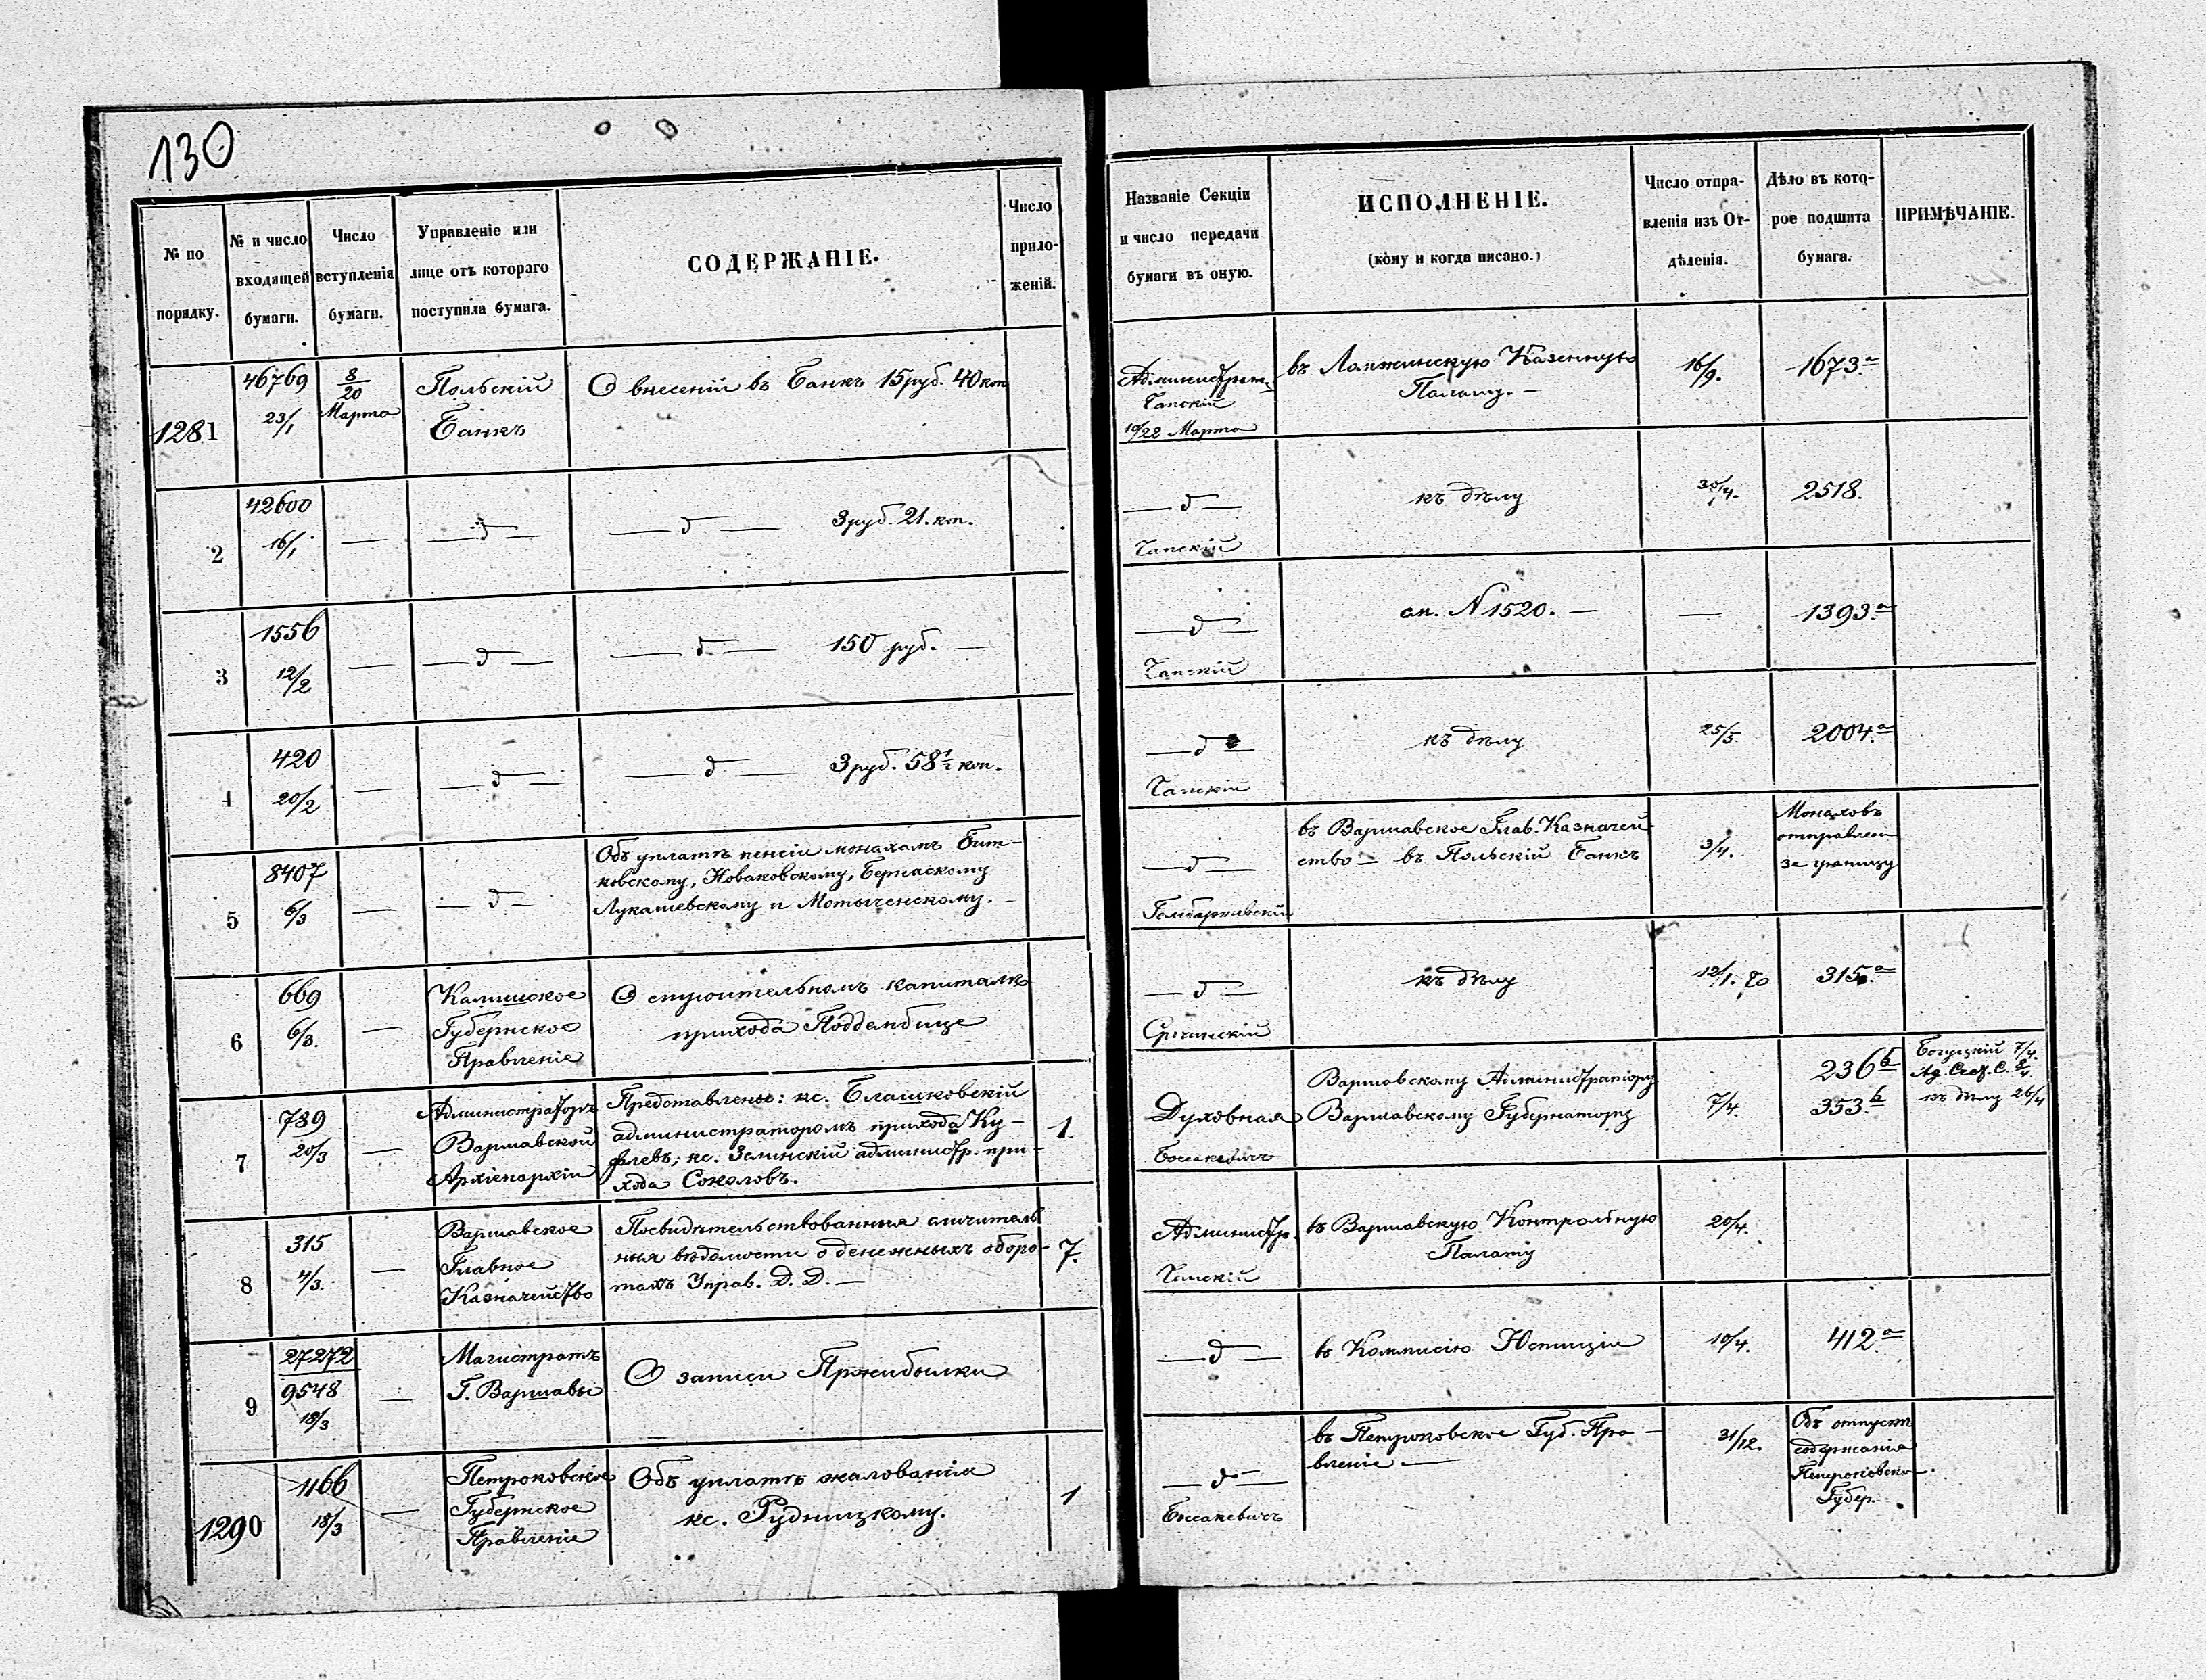 130
№ по порядку.
№ и число входящей бумаги.
Число вступленія бумаги.
Управленіе или лице отъ котораго поступила бумага.
СОДЕРЖАНІЕ.
Число прило-
женій.
Названіе Секціи и число передачи бумаги въ оную.
ИСПОЛНЕНІЕ.
(кому и когда писано.)
Число отпра-
вленія изъ От-
дѣленія.
Дѣло въ кото-
рое подшита бумага.
ПРИМѢЧАНІЕ.
1281
46769
23/1
8/20
Марта
Польскій
Банкъ
О внесеній въ Банкъ 15 руб. 40 коп
Администрат.
Чапскій
10/22 Марта
въ Ломжинскую Казенную
Палату. —
16/9.
1673.а
2
42600
16/1.
—
— д —
— д — 3 руб. 21. коп.
— д —
Чапскій
къ дѣлу
30/4.
2518.
3
1556
12/2
—
— д —
— д — 150 руб. —
— д —
Чапскій
ст. N 1520. —
—
1393.а
4
420
20/2
—
— д —
— д — 3 руб. 58½ коп.
— д —
Чапскій
къ дѣлу
25/5.
2004.а
5
8407
6/3
—
— д —
Объ уплатѣ пенсіи монахамъ Бит-
ковскому, Новаковскому,
Лукашевскому и —
— д —
въ Варшавское Глав. Казначей-
ство — въ Польскій Банкъ
3/4.
Монаховъ
отправлен
за границу
6
669
6/3.
—
Калишское
Губернское
Правленіе
О строительномъ капиталѣ
прихода Поддембице
— д —
къ дѣлу
12/1.
315.а
7
789
20/3
—
Администраторъ
Варшавской
Архіепархіи
Представленые: кс. Блашковскій
администраторомъ прихода Ку-
флевъ; кс. Зелинскій администр. при-
хода Соколовъ.
1.
Духовная
Боссакевичъ
Варшавскому Администратору
Варшавскому Губернатору
7/4.
236 б
353. б
7/4.
къ дѣлу 26/4
8
315
4/3.
—
Варшавское
Главное
Казначейство
Посвидѣтельствованныя сличитель
ныя вѣдомости о денежныхъ оборо-
тахъ Управ. Д. Д. —
7.
Администр.
Чапскій
въ Варшавскую Контрольную
Палату
20/4.
9
27272
9548
18/3
—
Магистратъ
Г. Варшавы
О записи Пржибылки
— д —
въ Коммисію Юстиціи
10/4.
412.а
1290
1166
18/3
—
Петроковское
Губернское
Правленіе
Объ уплатѣ жалованія
кс. Рудницкому.
1
— д —
Боссакевичъ
въ Петроковское Губ. Пра-
вленіе —
31/12.
Объ отпускѣ
содержанія
Петроковско
Губер.